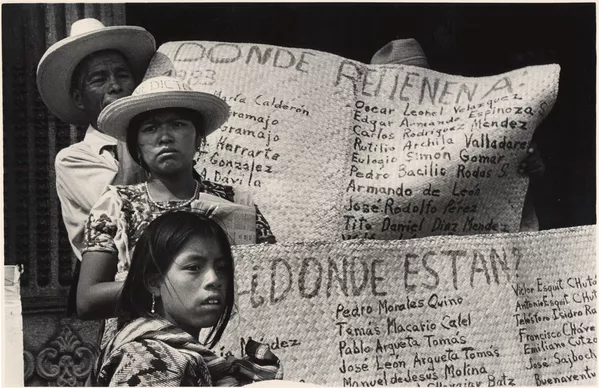 DONDE RETIENEN A:
1983
María Calderón
Gramajo
Gramajo
Herrarte
T. Gonzalez
A. Dávila
Oscar Leonel Velazquez
Edgar Armando Espinoza S
Carlos Rodríguez Méndez
Rutilio Archila Valladares
Eulogio Simon Gomar
Pedro Bacilio Rodas S.
Armando de León
José Rodolfo Pérez
Tito Daniel Diaz Mendez
¿DONDE ESTAN?
Pedro Morales Quino
Tomas Macario Calel
Pablo Arqueta Tomás
José León Arqueta Tomás
Manuel de Jesus Molina
Batz
Victor Esquit Chutá
Antonio Esquit Chut
Telésforo Isidro Ra
Francisco Cháve
Emiliano Cutzo
José Sajboch
Buenaventu